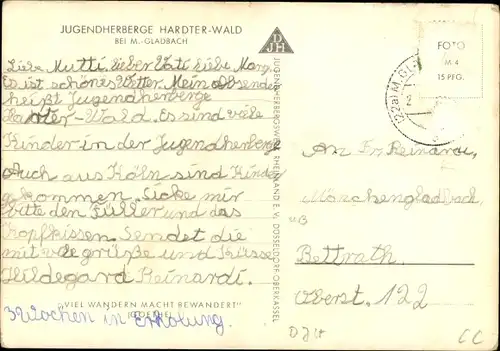 JUGENDHERBERGE HARDTER-WALD
BEI M.-GLADBACH
DJH
Liebe Mutti, lieber Vati liebe Marg.
Es ist schönes Wetter. Mein absend
heißt Jugendherberge
Hardter-Wald. Es sind viele
Kinder in der Jugendherberge
Auch aus Köln sind Kinder
gekommen. Sicke mir
bitte den Füller und das
Kopfkissen. Sendet die
mit viele grüße und Küsse
Hildegard Reinardi.
"VIEL WANDERN MACHT BEWANDERT"
(GOETHE)
3 Wochen in Erholung.
JUGENDHERBERGSWERK RHEINLAND E. V. DÜSSELDORF-OBERKASSEL
FOTO
M 4
15 PFG.
(22a) M.GL
2
An Fr. Reinardi,
Mönchengladbach,
Bettrath.
Oberst. 122
DJH
CC